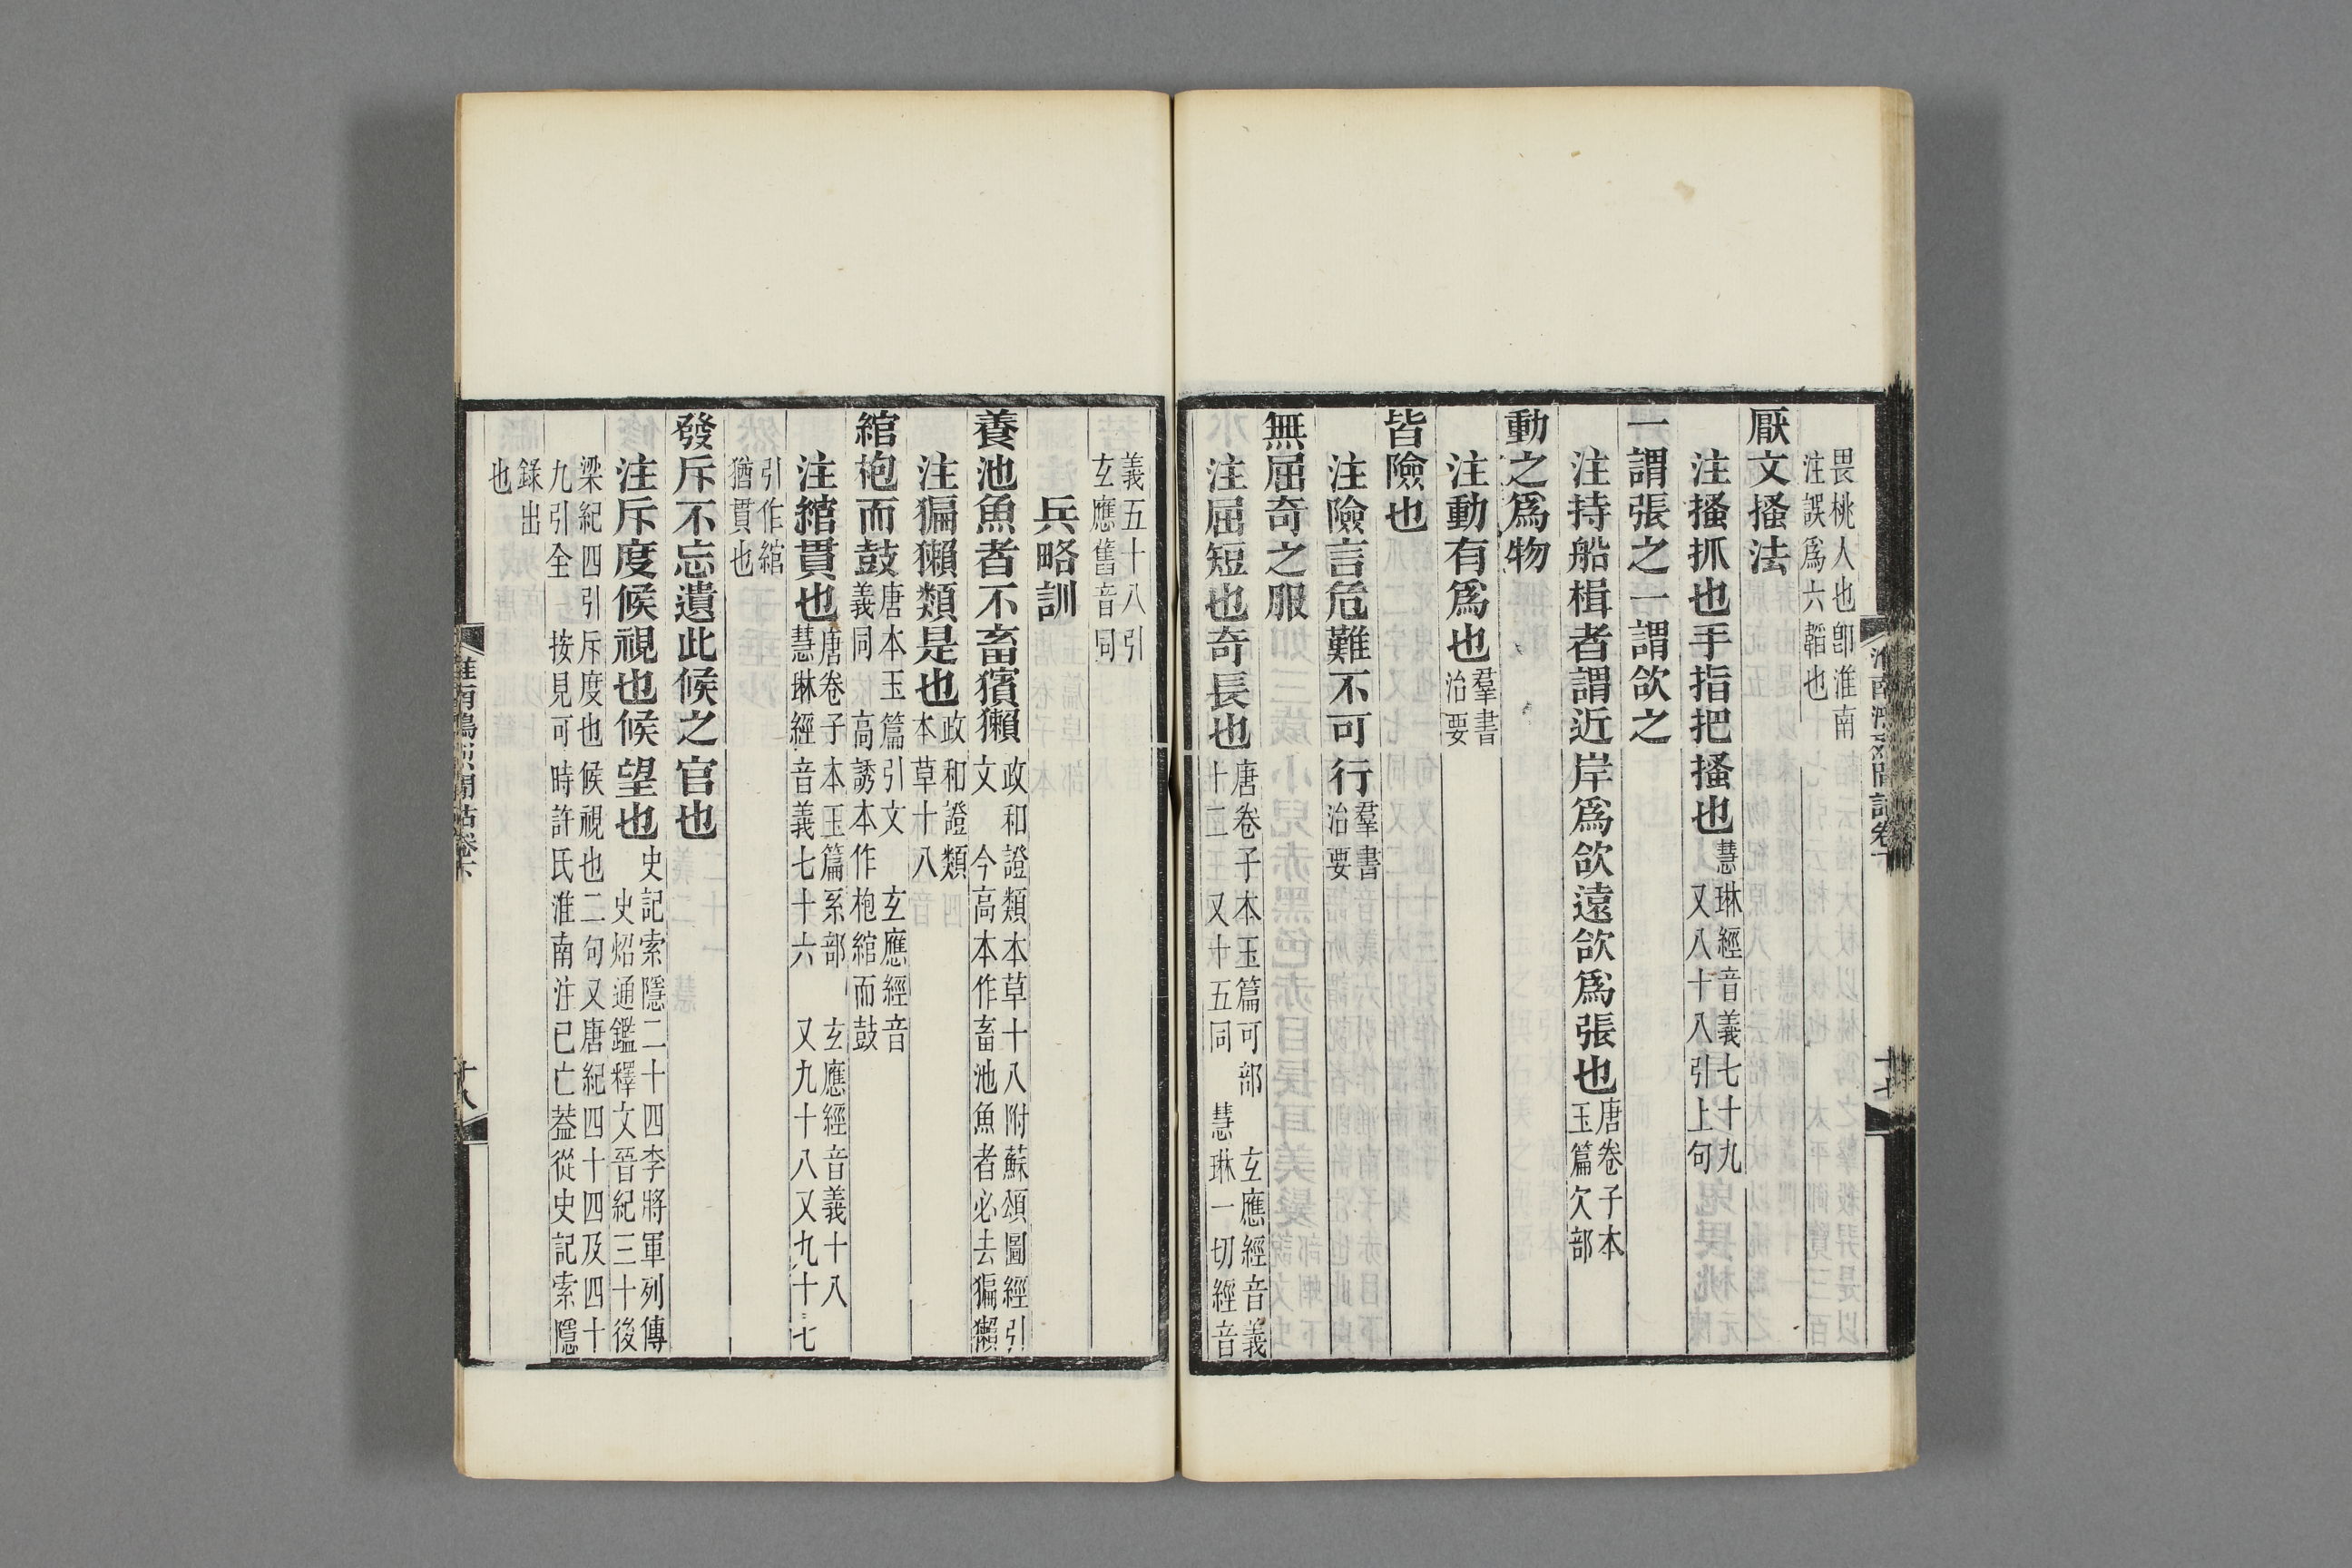 畏桃人也卽淮南
注誤爲六韜也
厭文搔法
注搔抓也手指把搔也慧琳經音義七十九
又八十八引上句
一謂張之一謂歙之
注持船楫者謂近岸爲歙遠歙爲張也唐卷子本
玉篇欠部
動之爲物
注動有爲也羣書
治要
皆險也
注險言危難不可行羣書
治要
無屈奇之服
注屈短也奇長也唐卷子本玉篇可部 玄應經音義
十二 又十五同 慧琳一切經音
義五十八引
玄應舊音同
兵略訓
養池魚者不畜獱獺政和證類本草十八附蘇頌圖經引
文 今高本作畜池魚者必去猵獺
注猵獺類是也政和證類
本草十八
綰枹而鼓唐本玉篇引文 玄應經音
義同 高誘本作枹綰而鼓
注綰貫也唐卷子本玉篇系部 玄應經音義十八
慧琳經音義七十六 又九十八又九十七
引作綰
猶貫也
發斥不忘遺此候之官也
注斥度候視也候望也史記索隱二十四李將軍列傳
史炤通鑑釋文晉紀三十後
梁紀四引斥度也候視也二句又唐紀四十四及四十
九引全 按見可時許氏淮南注已亡葢從史記索隱
錄出
也
十八